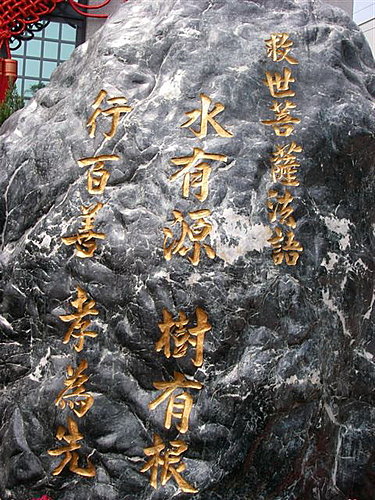 救世菩薩法語
水有源 樹有根
行百善 孝為先